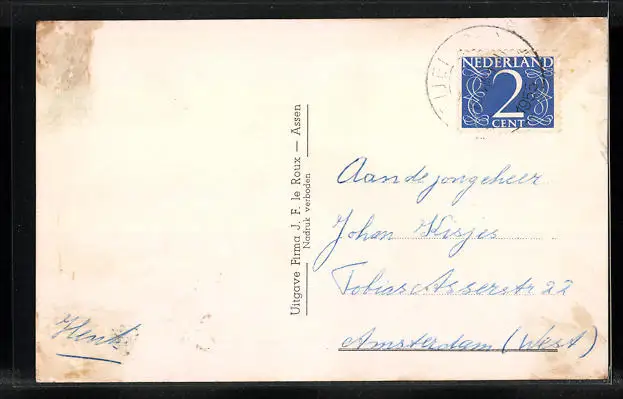 NEDERLAND
2
CENT
Uitgave Firma J. F. le Roux — Assen
Nadruk verboden
Aan de jongeheer
Johan Kisjes
Tobias Asserstr 22
Amsterdam (West)
Henk